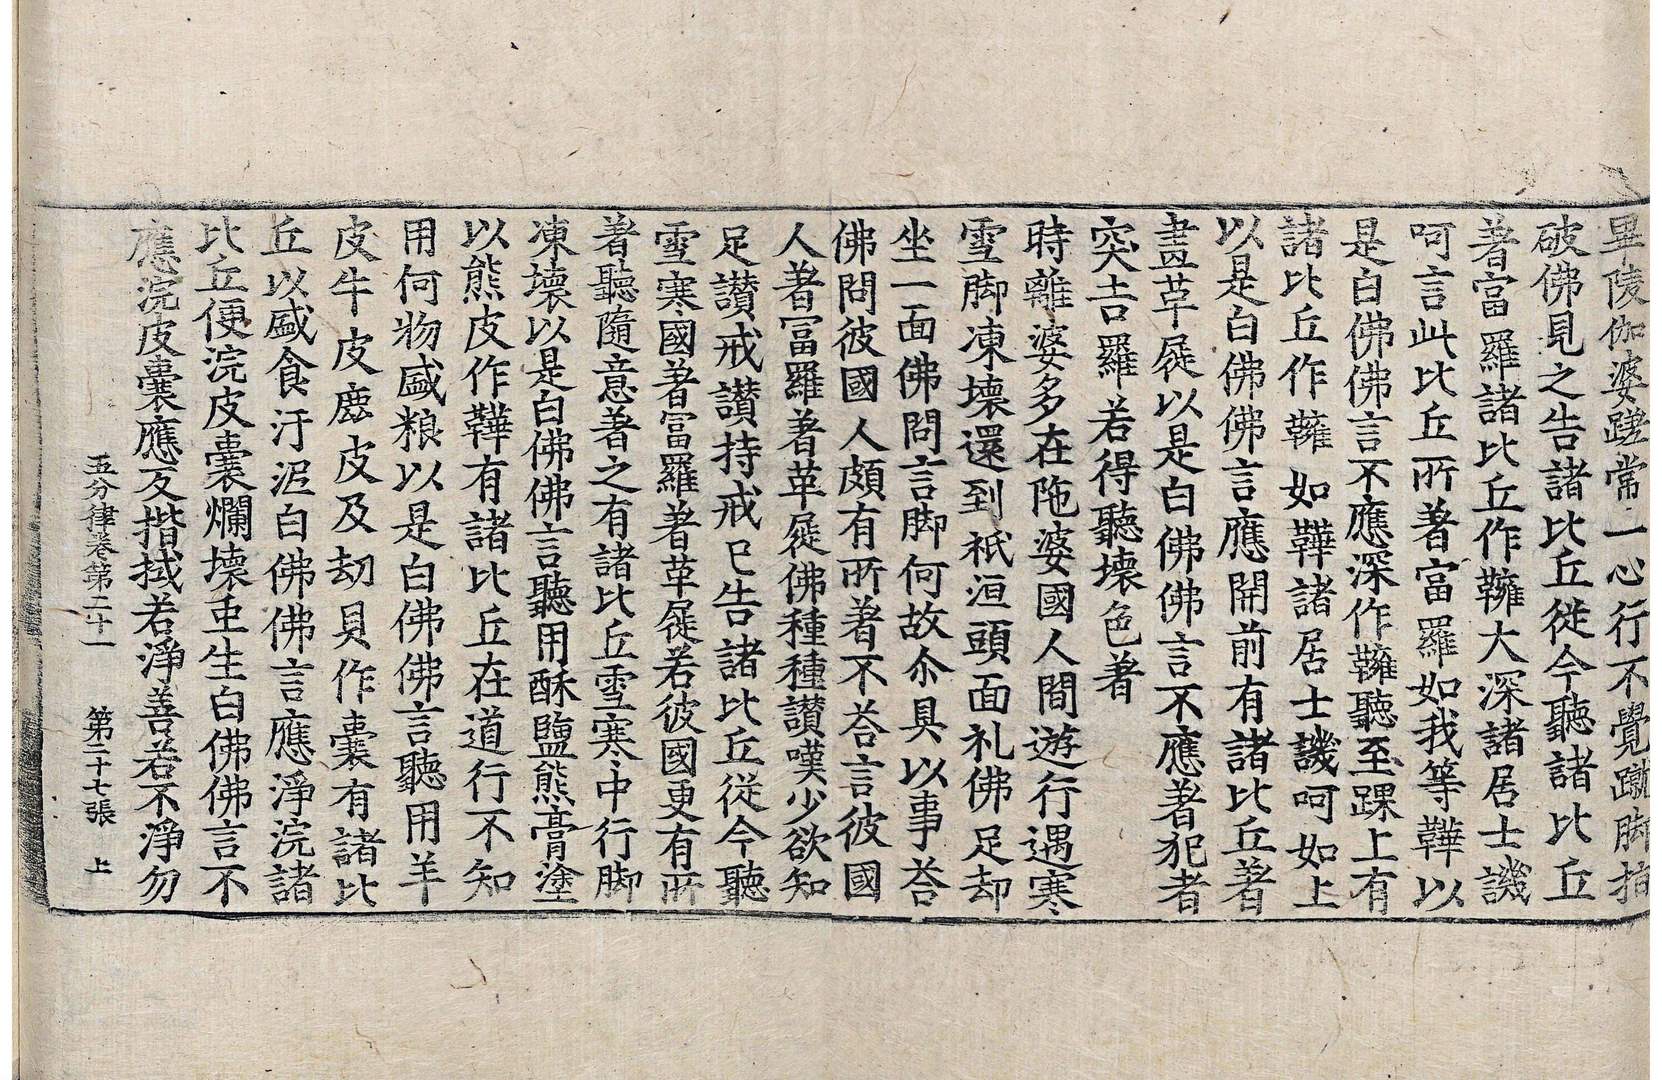 畢陵伽婆蹉常一心行不覺蹴脚指
破佛見之告諸比丘從今聽諸比丘
著富羅諸比丘作𩍓大深諸居士譏
呵言此比丘所著富羅如我等鞾以
是白佛佛言不應深作𩍓聽至踝上有
諸比丘作𩍓如鞾諸居士譏呵如上
以是白佛佛言應開前有諸比丘著
盡草屣以是白佛佛言不應著犯者
突吉羅若得聽壞色著
時離婆多在陁婆國人間遊行遇寒
雪脚凍壞還到祇洹頭面礼佛足却
坐一面佛問言脚何故尒具以事荅
佛問彼國人頗有所著不荅言彼國
人著富羅著革屣佛種種讃嘆少欲知
足讃戒讃持戒已告諸比丘從今聽
雪寒國著富羅著革屣若彼國更有所
著聽隨意著之有諸比丘雪寒中行脚
凍壞以是白佛佛言聽用酥鹽熊膏塗
以熊皮作鞾有諸比丘在道行不知
用何物盛粮以是白佛佛言聽用羊
皮牛皮鹿皮及劫貝作囊有諸比
丘以盛食汙泥白佛佛言應淨浣諸
比丘便浣皮囊爛壞虫生白佛佛言不
應浣皮囊應反揩拭若淨善若不淨勿
五分律卷第二十一 第二十七張 上